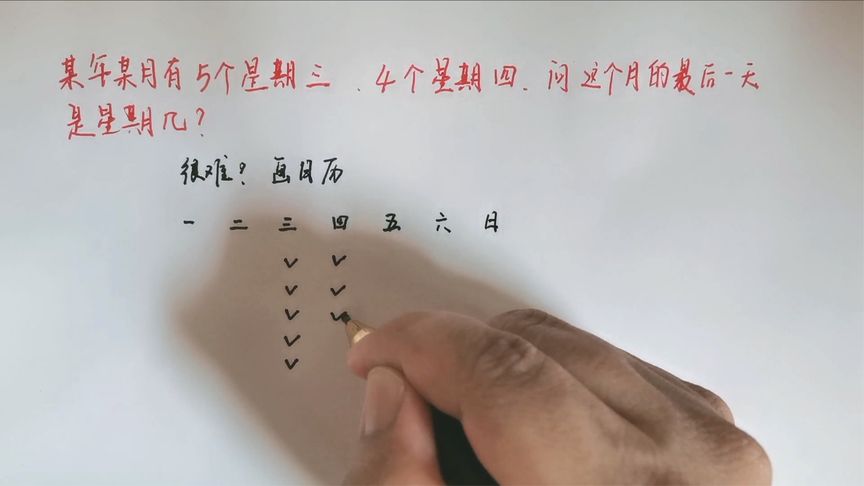 某年某月有5个星期三、4个星期四.问这个月的最后一天
是星期几?
很难? 画日历
一 二 三 四 五 六 日
✓ ✓
✓ ✓
✓ ✓
✓
✓